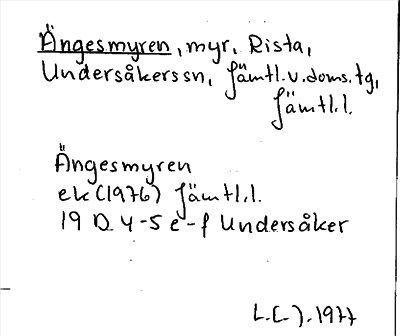 Ängesmyren, myr, Rista,
Undersåkers sn, Jämtl.v.doms.tg,
Jämtl.l.
Ängesmyren
ek (1976) Jämtl.l.
19 D 4-5 e-f Undersåker
L.L.J.-1977